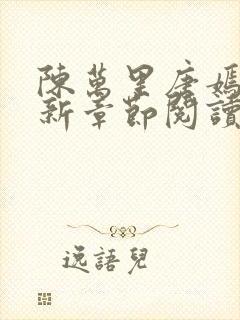 陳萬里唐嫣
新章節閱讀
逸語兒